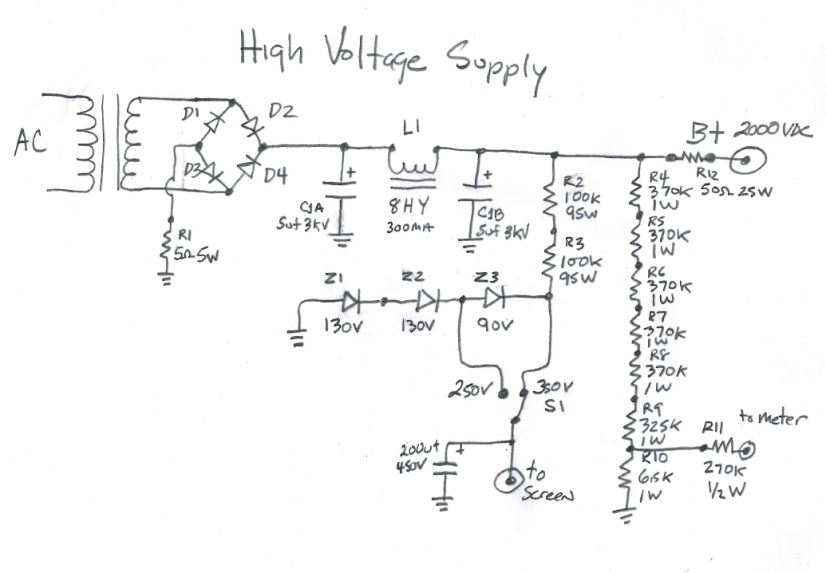 High Voltage Supply
AC
D1
D2
D3
D4
R1
5Ω 5W
+
C1A
5uf 3KV
L1
8HY
300MA
+
C1B
5uf 3KV
R2
100K
95W
R3
100K
95W
B+ 2000VDC
R12
50Ω 25W
R4
370K
1W
R5
370K
1W
R6
370K
1W
R7
370K
1W
R8
370K
1W
R9
325K
1W
R10
6.5K
1W
R11
270K
1/2 W
to Meter
Z1
130V
Z2
130V
Z3
90V
250V
350V
S1
200uf
450V
+
to
Screen